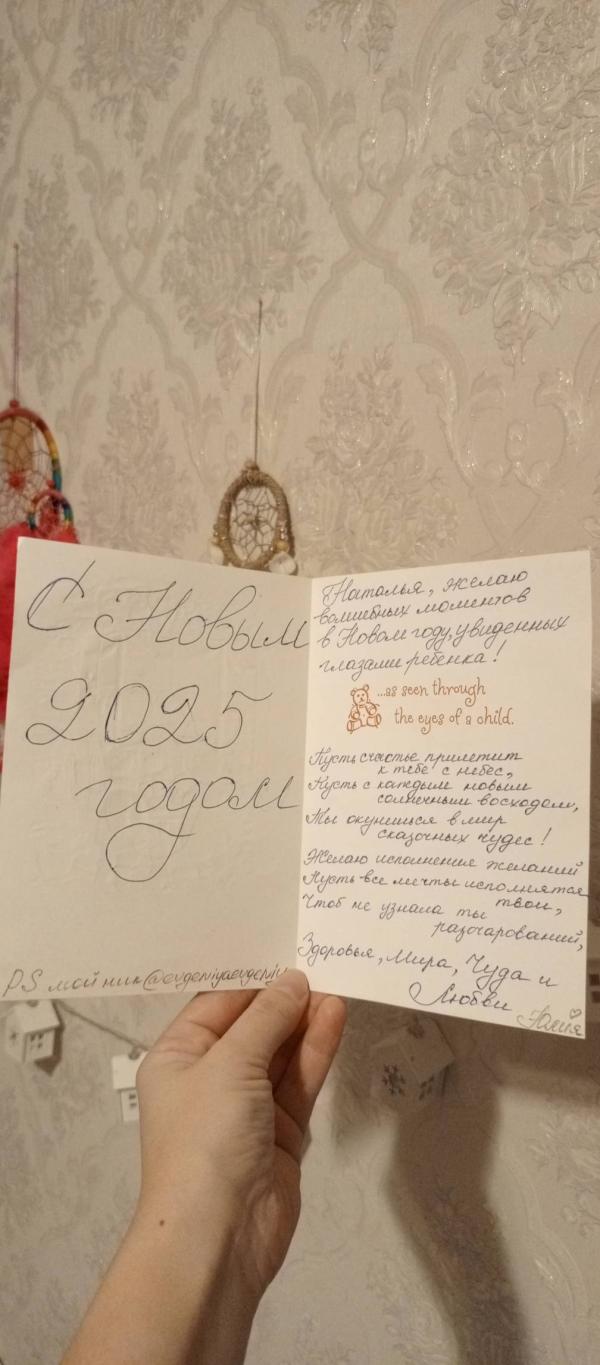 С Новым
2025
годом
PS мой ник @evgeniyaevgeniy
Наталья, желаю
волшебных моментов
в Новом году, увиденных
глазами ребенка!
...as seen through
the eyes of a child.
Пусть счастье прилетит
к тебе с небес,
Пусть с каждым новым
солнечным восходом,
Ты окунешься в мир
сказочных чудес!
Желаю исполнения желаний
Пусть все мечты исполнятся
твои,
Чтоб не узнала ты
разочарований,
Здоровья, Мира, Чуда и
Любви
Юлия